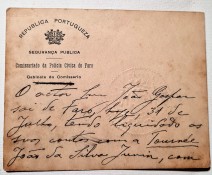 REPUBLICA PORTUGUEZA
SEGURANÇA PUBLICA
Comissariado da Policia Civica de Faro
Gabinete do Comissario
O actor João Gaspar
sai de Faro, hoje, 31 de
Julho, tendo liquidado as
suas contas com a Tournée
João da Silva Junior, com